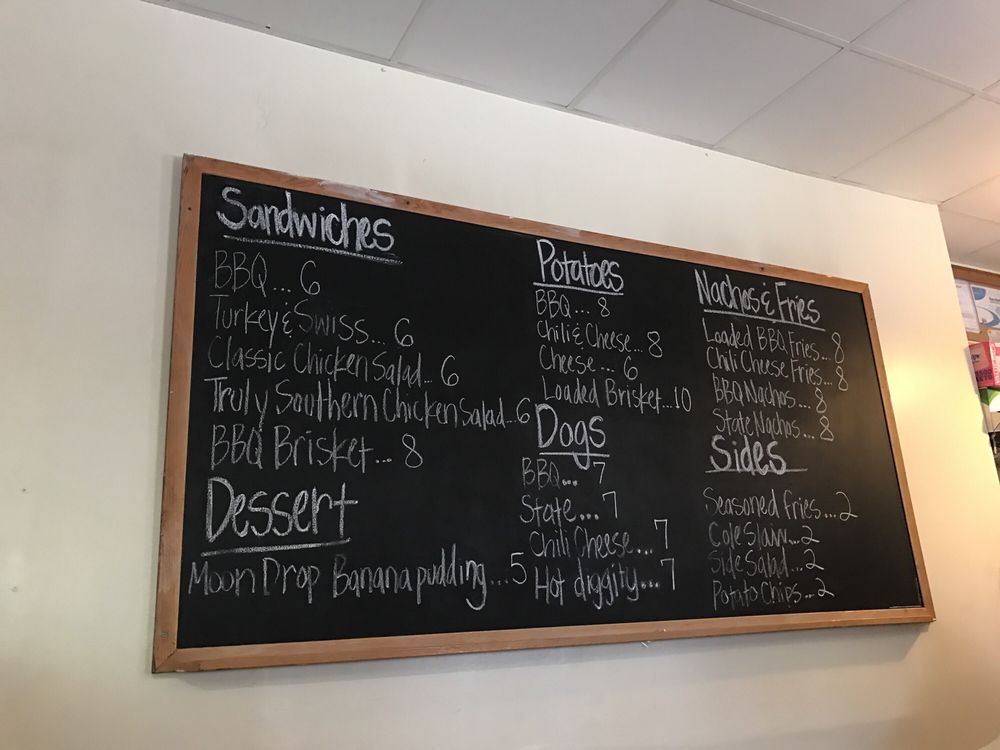 Sandwiches
BBQ... 6
Turkey & Swiss... 6
Classic Chicken Salad... 6
Truly Southern Chicken Salad...6
BBQ Brisket... 8
Dessert
Moon Drop Banana pudding...5
Potatoes
BBQ... 8
Chili & Cheese... 8
Cheese... 6
Loaded Brisket...10
Dogs
BBQ... 7
State... 7
Chili Cheese... 7
Hot diggity... 7
Nachos & Fries
Loaded BBQ Fries... 8
Chili Cheese Fries... 8
BBQ Nachos.... 8
State Nachos... 8
Sides
Seasoned fries...2
Cole Slaw...2
Side Salad...2
Potato Chips...2